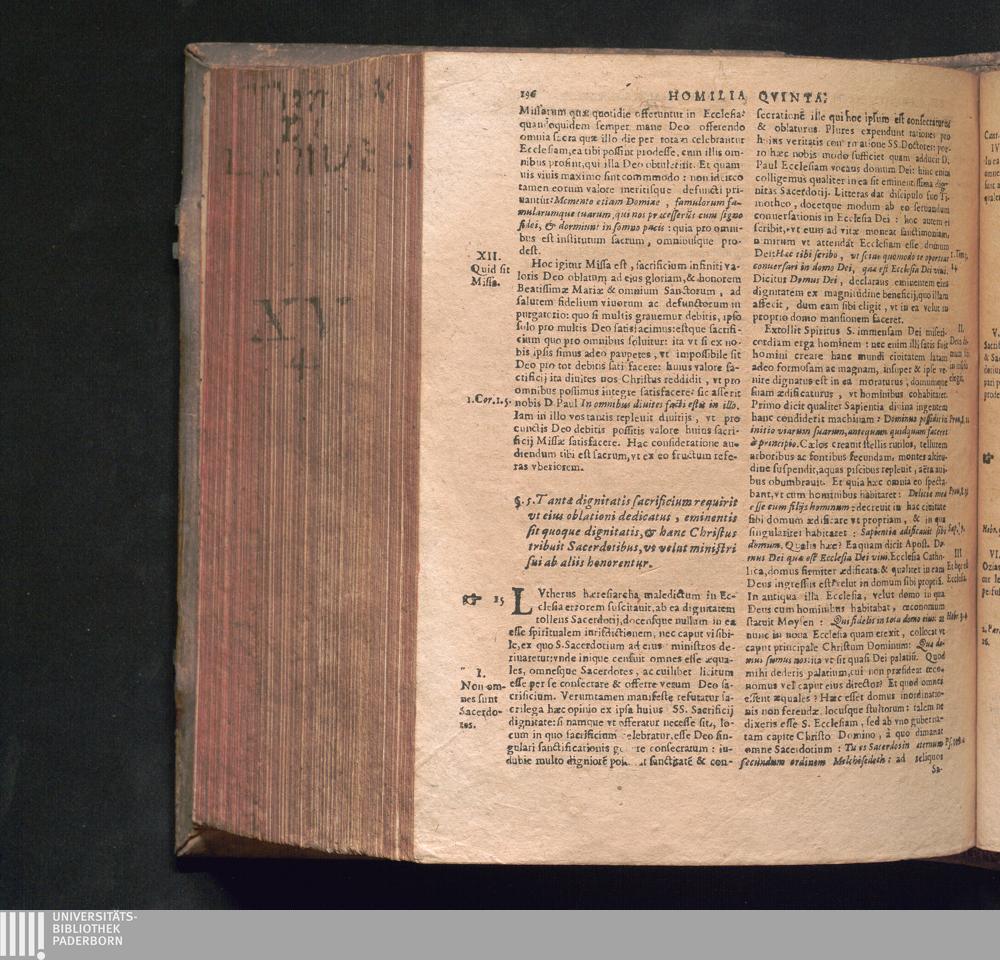 196
HOMILIA QVINTA:
Missarum quæ quotidie offeruntur in Ecclesia:
quandoquidem semper mane Deo offerendo
omnia sacra quæ illo die per totam celebrantur
Ecclesiam, ea tibi possint prodesse, cum illis om-
nibus prosint, qui illa Deo obtulerint. Et quam-
uis viuis maximo sint commodo: non idcirco
tamen eorum valore meritisque defuncti pri-
uantur: Memento etiam Domine, famulorum fa-
mularumque tuarum, qui nos præcesserũt cum signo
fidei, & dormiunt in somno pacis: quia pro omni-
bus est institutum sacrum, omnibusque pro-
dest.
XII.
Quid sit
Missa.
Hoc igitur Missa est, sacrificium infiniti va-
loris Deo oblatum ad eius gloriam, & honorem
Beatissimæ Mariæ & omnium Sanctorum, ad
salutem fidelium viuorum ac defunctorum in
purgatorio: quo si multis grauemur debitis, ipso
solo pro multis Deo satisfacimus: estque sacrifi-
cium quo pro omnibus soluitur: ita vt si ex no-
bis ipsis simus adeo paupetes, vt impossibile sit
Deo pro tot debitis satisfacere: huius valore sa-
crificij ita diuites nos Christus reddidit, vt pro
omnibus possimus integre satisfacere: sic asserit
1. Cor. 1. 5.
nobis D. Paul. In omnibus diuites facti estis in illo.
Iam in illo vos tantis repleuit diuitijs, vt pro
cunctis Deo debitis possitis valore huius sacri-
ficij Missæ satisfacere. Hac consideratione au-
diendum tibi est sacrum, vt ex eo fructum refe-
ras vberiorem.
§. 5. Tantæ dignitatis sacrificium requirit
vt eius oblationi dedicatus, eminentis
sit quoque dignitatis, & hanc Christus
tribuit Sacerdotibus, vt velut ministri
sui ab aliis honorentur.
15
LVtherus hæresiarcha maledictum in Ec-
clesia errorem suscitauit, ab ea dignitatem
tollens Sacerdotij, docensque nullam in ea
esse spiritualem iurisdictionem, nec caput visibi-
le, ex quo S. Sacerdotium ad eius ministros de-
riuaretur: vnde inique censuit omnes esse æqua-
les, omnesque Sacerdotes, ac cuilibet licitum
I.
Non om-
nes sunt
Sacerdo-
tes.
esse per se consecrare & offerre verum Deo sa-
crificium. Verumtamen manifestè refutatur sa-
crilega hæc opinio ex ipsa huius SS. Sacrificij
dignitate: si namque vt offeratur necesse sit, lo-
cum in quo sacrificium celebratur, esse Deo sin-
gulari sanctificationis consecratum: in-
dubie multo digniorẽ sanctitatẽ & con-
secrationẽ ille qui hoc ipsum est consecraturus
& oblaturus. Plures expendunt rationes pro
huius veritatis confirmatione SS. Doctores: por-
ro hæc nobis modo sufficiet quam adducit D.
Paul Ecclesiam vocans domum Dei: hinc enim
colligemus qualiter in ea sit eminentissima dig-
nitas Sacerdotij. Litteras dat discipulo suo Ti-
motheo, docetque modum ab eo seruandum
conuersationis in Ecclesia Dei: hoc autem ei
scribit, vt eum ad vitæ moneat sanctimoniam,
nimirum vt attendat Ecclesiam esse domum
Dei: Hæc tibi scribo, vt scias quomodo te oporteat
conuersari in domo Dei, quæ est Ecclesia Dei viui.
Dicitur Domus Dei, declarans eminentem eius
dignitatem ex magnitudine beneficij, quo illam
affecit, dum eam sibi eligit, vt in ea velut in
proprio domo mansionem faceret.
Extollit Spiritus S. immensam Dei miseri-
cordiam erga hominem: nec enim illi satis fuit
homini creare hanc mundi ciuitatem latam
adeo formosam ac magnam, insuper & ipse ve-
nire dignatus est in ea moraturus, domumque
suam ædificaturus, vt hominibus cohabitaret.
Primo dicit qualiter Sapientia diuina ingentem
hanc condiderit machinam: Dominus possedit in
initio viarum suarum, antequam quidquam faceret
à principio. Cælos creauit stellis rutilos, tellurem
arboribus ac fontibus fecundam, montes altitu-
dine suspendit, aquas piscibus repleuit, aëra aui-
bus obumbrauit. Et quia hæc omnia eo specta-
bant, vt cum hominibus habitaret: Deliciæ meæ
esse cum filijs hominum: decreuit in hac ciuitate
sibi domum ædificare vt propriam, & in qua
singulariter habitaret: Sapientia ædificauit sibi
domum. Qualis hæc? Ea quam dicit Apost. Do-
mus Dei quæ est Ecclesia Dei viui. Ecclesia Catho-
lica, domus firmiter ædificata: & qualiter in eam
Deus ingressus est? velut in domum sibi propriã.
In antiqua illa Ecclesia, velut domo in qua
Deus cum hominibus habitabat, œconomum
statuit Moysen: Qui fidelis in tota domo eius: at
nunc in noua Ecclesia quam erexit, collocat vt
caput principale Christum Dominum: Quæ do-
mus sumus nos: ita vt sit quasi Dei palatiũ. Quod
mihi dederis palatium, cui non præsideat œco-
nomus vel caput eius director? Et quod omnes
essent æquales? Hæc esset domus inordinatio-
nis non ferendæ, locusque stultorum: talem ne
dixeris esse S. Ecclesiam, sed ab vno guberna-
tam capite Christo Domino, à quo dimanat
omne Sacerdotium: Tu es Sacerdos in æternum
secundum ordinem Melchisedech: ad reliquos
Sa-
1. Tim. 3.
II.
III
UNIVERSITÄTS-
BIBLIOTHEK
PADERBORN